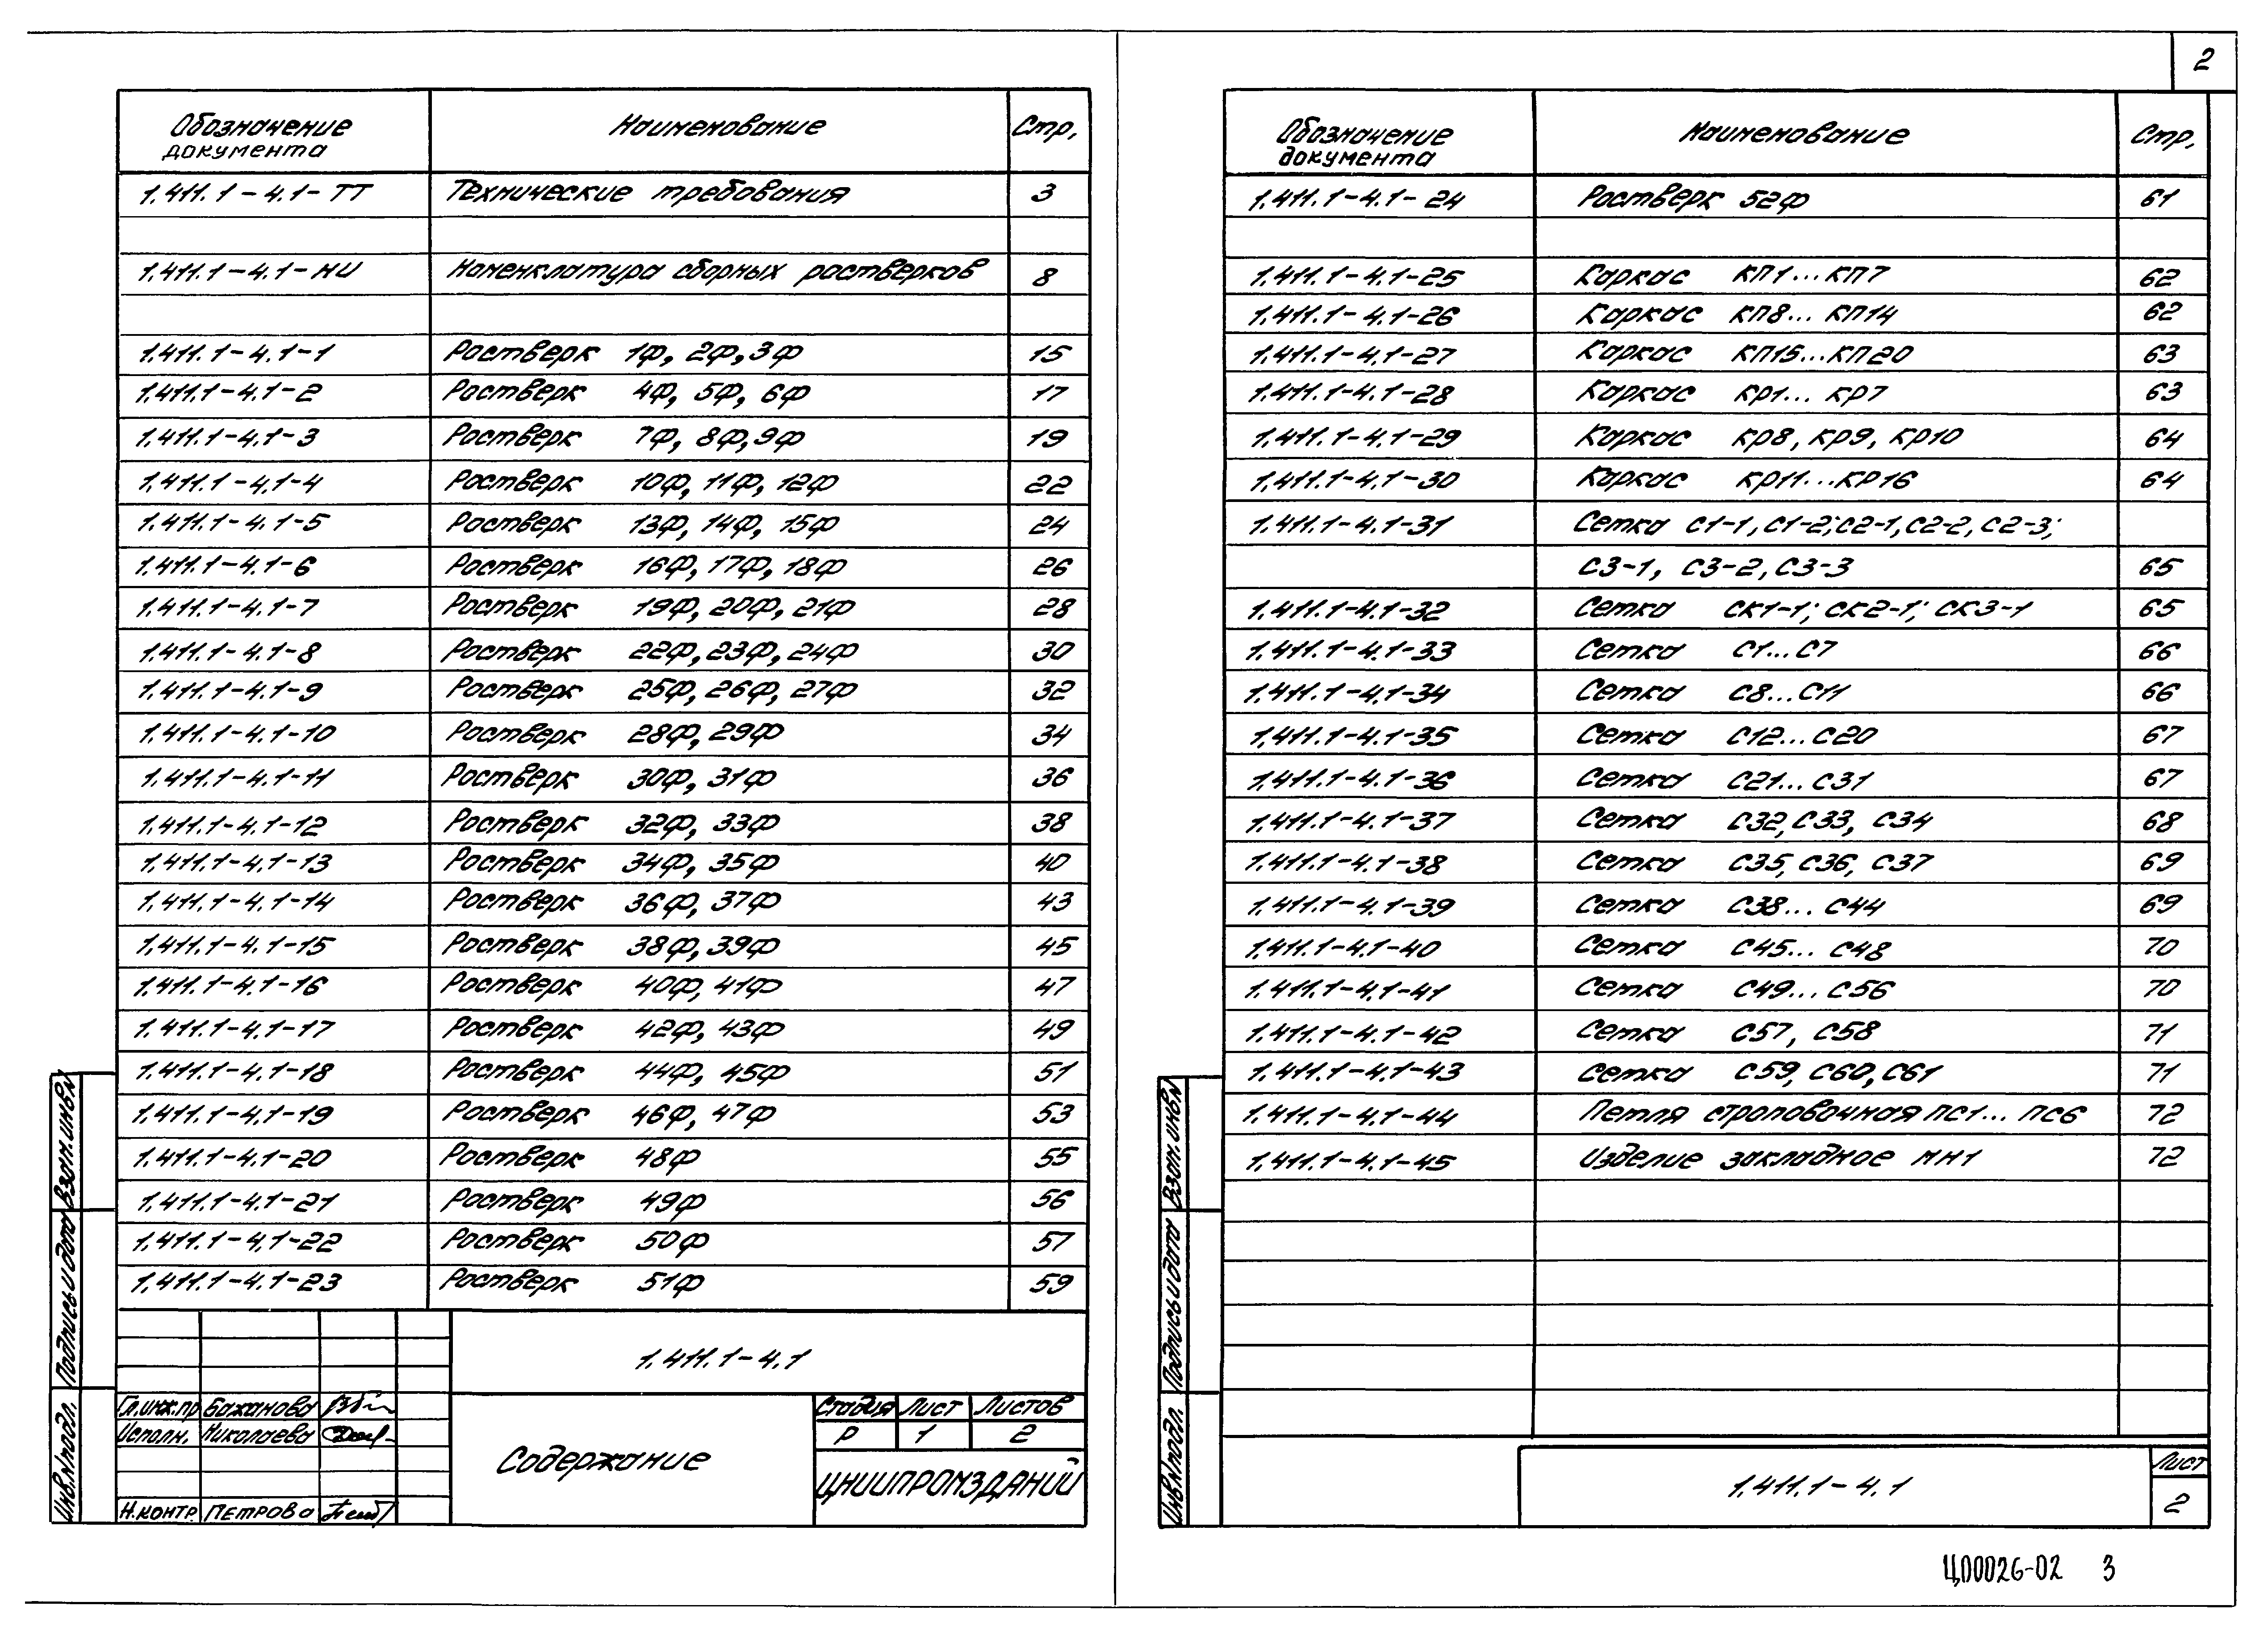 2
Обозначение документа Наименование Стр.
1.411.1-4.1-ТТ Технические требования 3
1.411.1-4.1-НИ Номенклатура сборных ростверков 8
1.411.1-4.1-1 Ростверк 1Ф, 2Ф, 3Ф 15
1.411.1-4.1-2 Ростверк 4Ф, 5Ф, 6Ф 17
1.411.1-4.1-3 Ростверк 7Ф, 8Ф, 9Ф 19
1.411.1-4.1-4 Ростверк 10Ф, 11Ф, 12Ф 22
1.411.1-4.1-5 Ростверк 13Ф, 14Ф, 15Ф 24
1.411.1-4.1-6 Ростверк 16Ф, 17Ф, 18Ф 26
1.411.1-4.1-7 Ростверк 19Ф, 20Ф, 21Ф 28
1.411.1-4.1-8 Ростверк 22Ф, 23Ф, 24Ф 30
1.411.1-4.1-9 Ростверк 25Ф, 26Ф, 27Ф 32
1.411.1-4.1-10 Ростверк 28Ф, 29Ф 34
1.411.1-4.1-11 Ростверк 30Ф, 31Ф 36
1.411.1-4.1-12 Ростверк 32Ф, 33Ф 38
1.411.1-4.1-13 Ростверк 34Ф, 35Ф 40
1.411.1-4.1-14 Ростверк 36Ф, 37Ф 43
1.411.1-4.1-15 Ростверк 38Ф, 39Ф 45
1.411.1-4.1-16 Ростверк 40Ф, 41Ф 47
1.411.1-4.1-17 Ростверк 42Ф, 43Ф 49
1.411.1-4.1-18 Ростверк 44Ф, 45Ф 51
1.411.1-4.1-19 Ростверк 46Ф, 47Ф 53
1.411.1-4.1-20 Ростверк 48Ф 55
1.411.1-4.1-21 Ростверк 49Ф 56
1.411.1-4.1-22 Ростверк 50Ф 57
1.411.1-4.1-23 Ростверк 51Ф 59
1.411.1-4.1
Гл.инж.пр Бажанова
Исполн. Николаева
Н.контр. Петрова
Содержание
Стадия Лист Листов
Р 1 2
ЦНИИПРОМЗДАНИЙ
Взам.инв.N
Подпись и дата
Инв.N подл.
Обозначение документа Наименование Стр.
1.411.1-4.1-24 Ростверк 52Ф 61
1.411.1-4.1-25 Каркас КП1...КП7 62
1.411.1-4.1-26 Каркас КП8...КП14 62
1.411.1-4.1-27 Каркас КП15...КП20 63
1.411.1-4.1-28 Каркас КР1...КР7 63
1.411.1-4.1-29 Каркас КР8, КР9, КР10 64
1.411.1-4.1-30 Каркас КР11...КР16 64
1.411.1-4.1-31 Сетка С1-1, С1-2; С2-1, С2-2, С2-3;
С3-1, С3-2, С3-3 65
1.411.1-4.1-32 Сетка СК1-1; СК2-1; СК3-1 65
1.411.1-4.1-33 Сетка С1...С7 66
1.411.1-4.1-34 Сетка С8...С11 66
1.411.1-4.1-35 Сетка С12...С20 67
1.411.1-4.1-36 Сетка С21...С31 67
1.411.1-4.1-37 Сетка С32, С33, С34 68
1.411.1-4.1-38 Сетка С35, С36, С37 69
1.411.1-4.1-39 Сетка С38...С44 69
1.411.1-4.1-40 Сетка С45...С48 70
1.411.1-4.1-41 Сетка С49...С56 70
1.411.1-4.1-42 Сетка С57, С58 71
1.411.1-4.1-43 Сетка С59, С60, С61 71
1.411.1-4.1-44 Петля строповочная ПС1...ПС6 72
1.411.1-4.1-45 Изделие закладное МН1 72
1.411.1-4.1
Лист
2
Взам.инв.N
Подпись и дата
Инв.N подл.
Ц00026-02 3